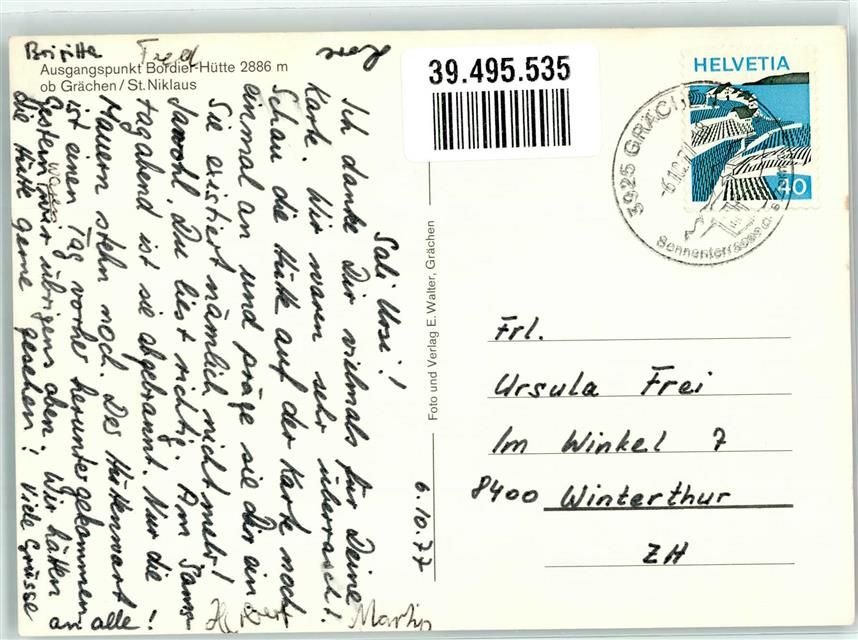 Ausgangspunkt Bordier-Hütte 2886 m
ob Grächen / St. Niklaus
Brigitte
Fred
39.495.535
HELVETIA
40
3925 GRÄCHEN
6.10.77
Sonnenterrasse
Sali Ursi!
Ich danke Dir vielmals für Deine
Karte. Wir waren sehr überrascht!
Schau die Hütte auf der Karte noch
einmal an und präge sie Dir ein
Sie existiert nämlich nicht mehr!
Jawohl. Du liest richtig. Am Sams-
tagabend ist sie abgebrannt. Nur die
Mauern stehn noch. Der Hüttenwart
ist einen Tag vorher heruntergekommen.
Gestern waren wir übrigens oben. Wir hätten
die Hütte gerne gesehen! Viele Grüsse
an alle!
Martin
6.10.77
Foto und Verlag E. Walter, Grächen
Frl.
Ursula Frei
Im Winkel 7
8400 Winterthur
ZH